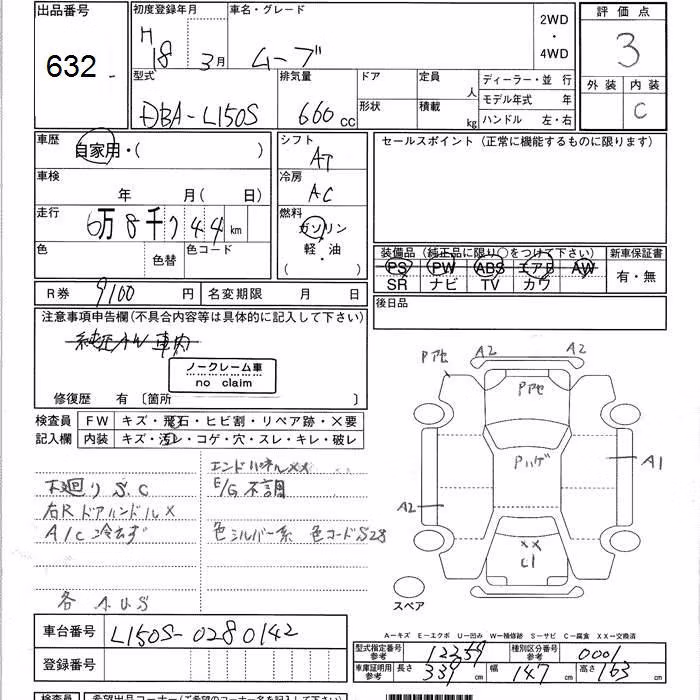 出品番号
632
初度登録年月
H
18 3月
車名・グレード
ムーブ
2WD
・
4WD
評価点
3
外装 内装
C
型式
DBA-L150S
排気量
660 cc
ドア
形状
定員
人
積載
kg
ディーラー・並 行
モデル年式 年
ハンドル 左・右
車歴
自家用・( )
シフト
AT
セールスポイント (正常に機能するものに限ります)
車検
年 月( 日)
冷房
AC
走行
6万8千744 km
燃料
ガソリン
軽・油
( )
色
色替
色コード
装備品 (純正品に限り○をつけて下さい)
新車保証書
PS PW ABS エアB AW
SR ナビ TV カワ
有・無
R券 9100 円
名変期限 月 日
後日品
注意事項申告欄(不具合内容等は具体的に記入して下さい)
純正AW 車内
ノークレーム車
no claim
修復歴 有 〔箇所 〕
検査員
記入欄
FW キズ・飛石・ヒビ割・リペア跡・×要
内装 キズ・汚レ・コゲ・穴・スレ・キレ・破レ
エンドパネルXX
下廻りS.C
E/G不調
右Rドアハンドル×
A/C冷えず
色シルバー系 色コードS28
各A.U.S
Pアセ
A2
A2
Pアセ
Pハゲ
A1
A2
XX
C1
スペア
車台番号
L150S-0280142
登録番号
A-キズ E-エクボ U-凹み W-補修跡 S-サビ C-腐食 XX-交換済
型式指定番号
参考
12259
種別区分番号
参考
0001
車庫証明用
参考
長さ
339 cm
幅
147 cm
高さ
163 cm
検査員
希望出品コーナー(ご希望のコーナー名を記入下さい)